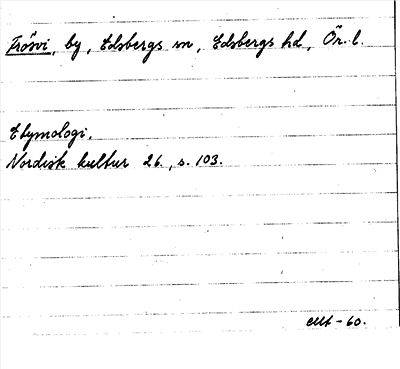 Frösvi, by, Edsbergs sn, Edsbergs hd, Ör. l.
Etymologi.
Nordisk kultur 26., s. 103.
-60.